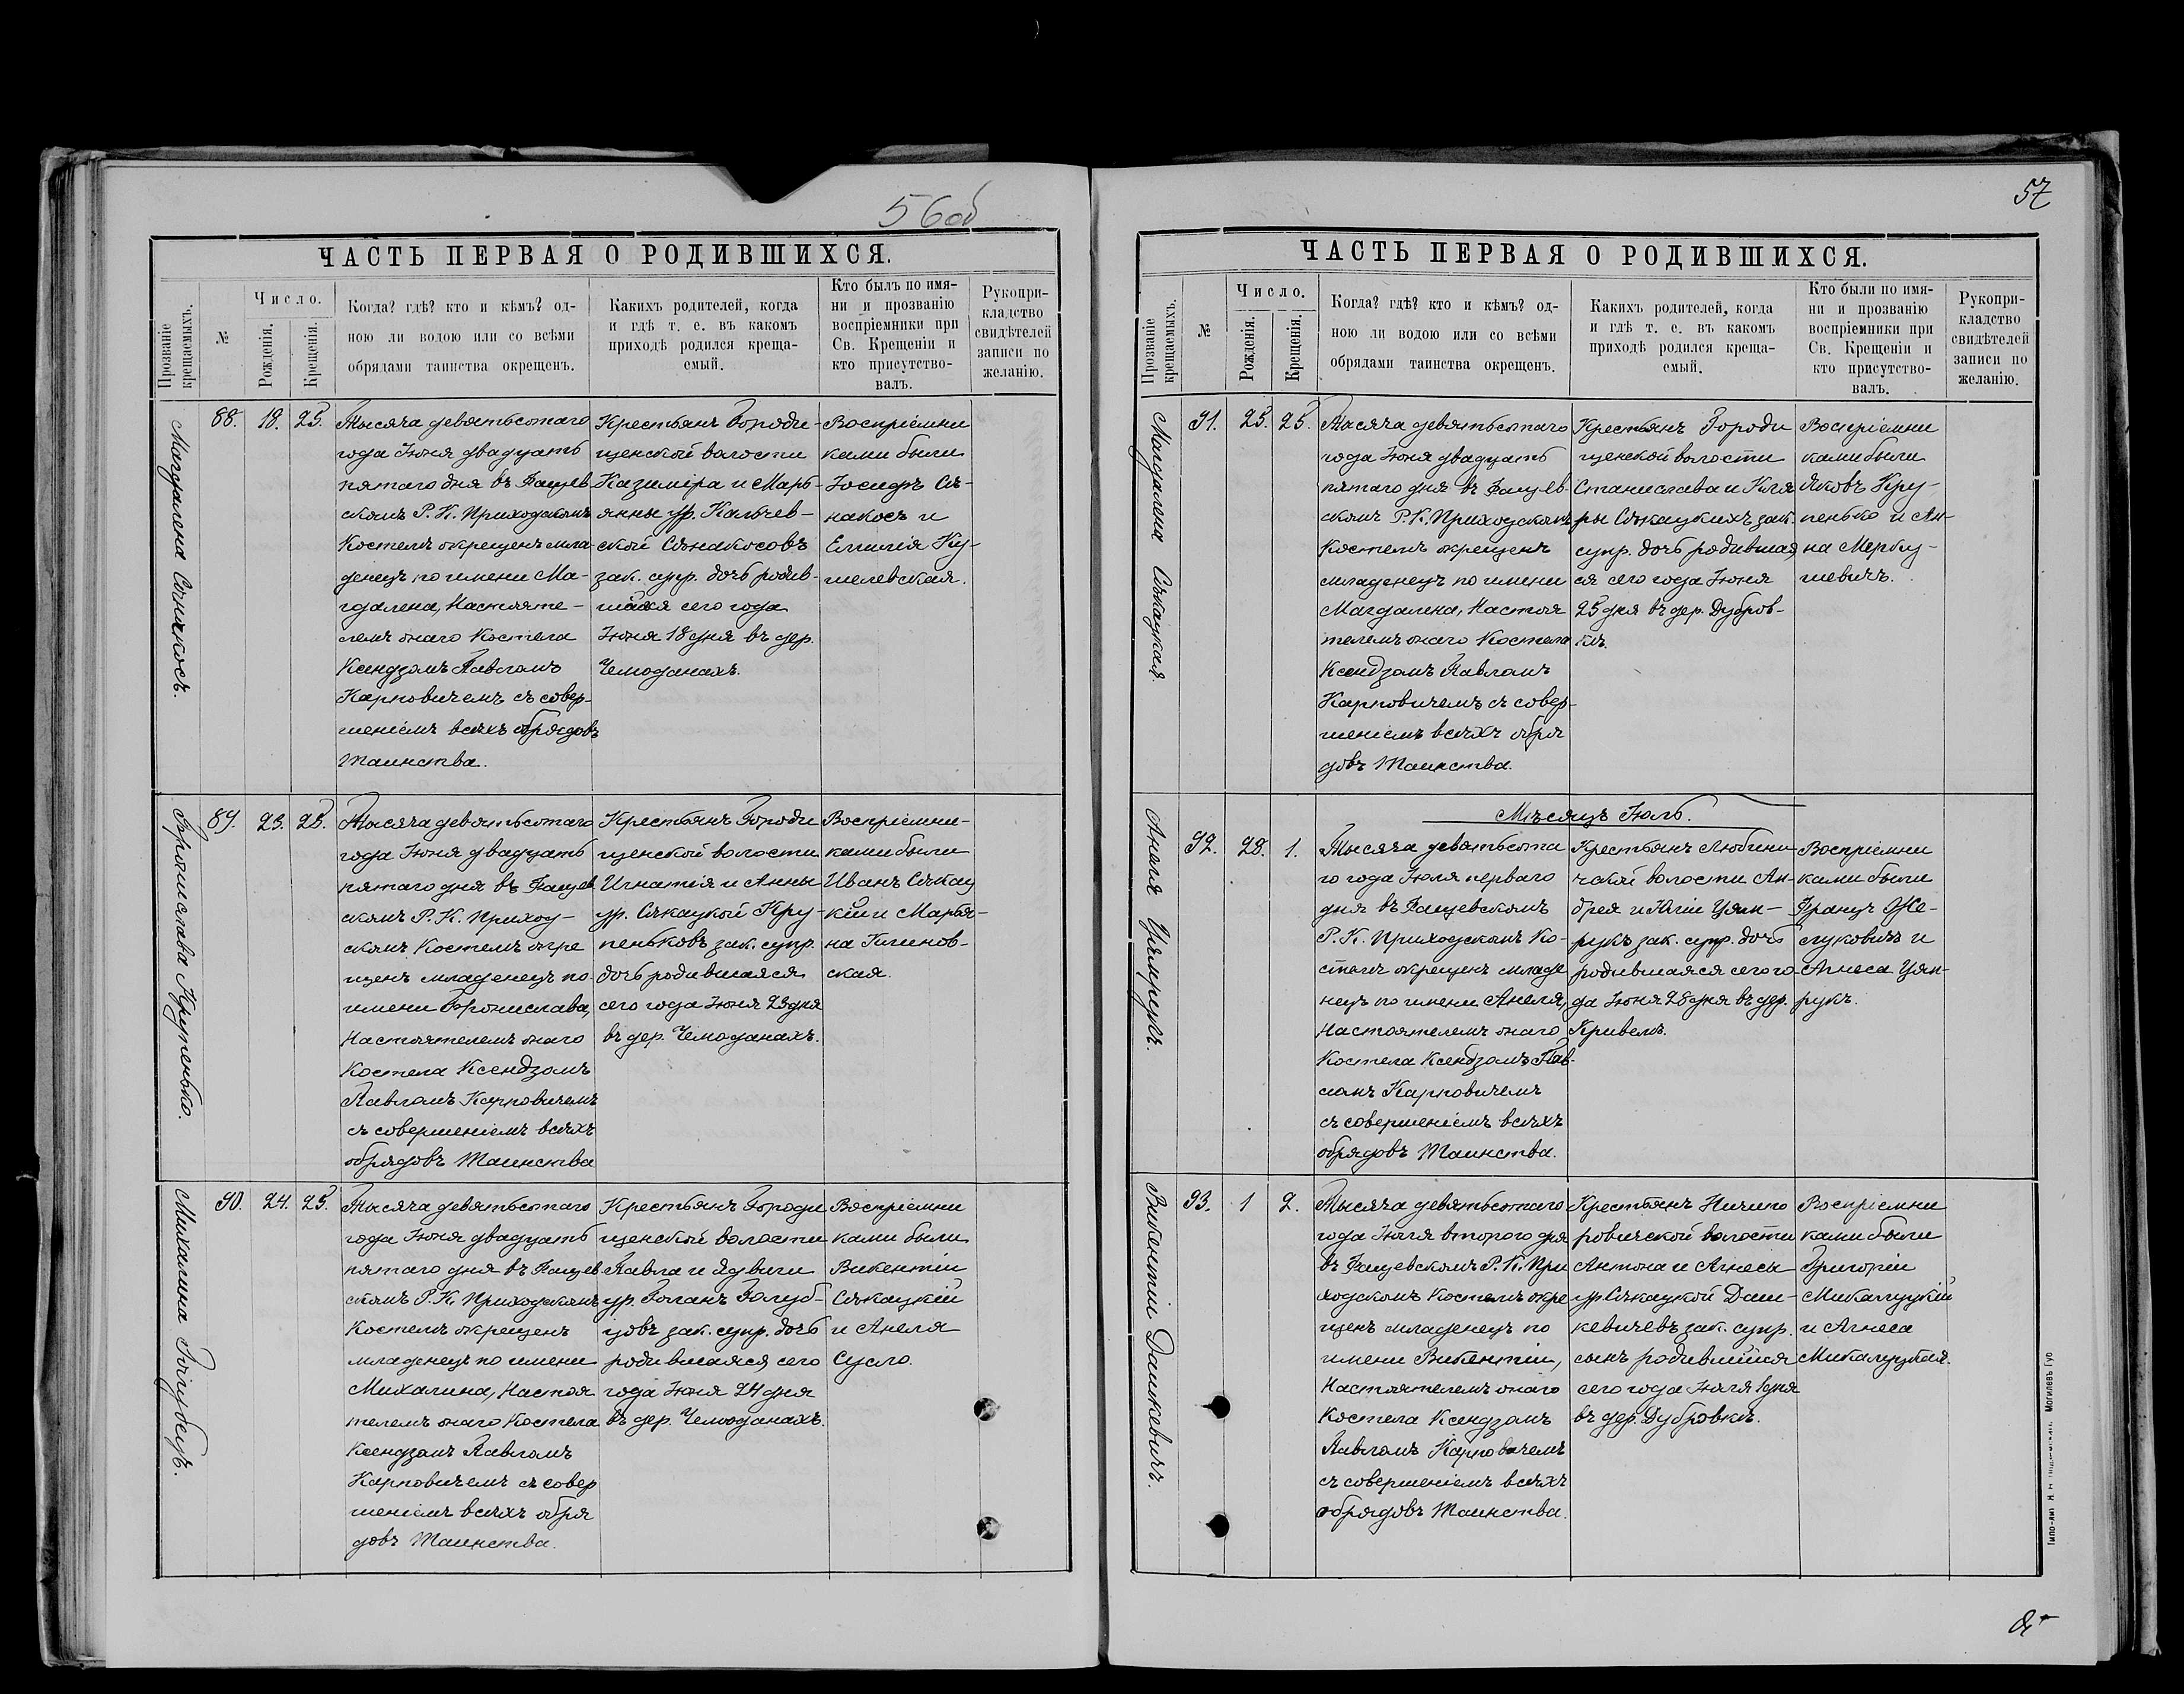 56об
ЧАСТЬ ПЕРВАЯ О РОДИВШИХСЯ.
Прозваніе крещаемыхъ.
№
Число.
Рожденія.
Крещенія.
Когда? гдѣ? кто и кѣмъ? од-
ною ли водою или со всѣми
обрядами таинства окрещенъ.
Какихъ родителей, когда
и гдѣ т. е. въ какомъ
приходѣ родился креща-
емый.
Кто былъ по имя-
ни и прозванію
воспріемники при
Св. Крещеніи и
кто присутство-
валъ.
Рукопри-
кладство
свидѣтелей
записи по
желанію.
Магдалена Сѣнакосъ.
88. 18. 25.
Тысяча девятьсотаго
года Іюня двадцать
пятаго дня въ Фащев
скомъ Р. К. Приходскомъ
Костелѣ окрещенъ мла-
денецъ по имени Ма-
гдалена, Настояте-
лемъ онаго Костела
Ксендзомъ Павломъ
Карповичемъ съ совер-
шеніемъ всѣхъ обрядовъ
Таинства.
Крестьянъ Городи-
щенской волости
Казиміра и Марь-
янны ур.
ской Сѣнакосовъ
зак. супр. дочь родив-
шаяся сего года
Іюня 18 дня въ дер.
Чемоданахъ.
Воспріемни
ками были
Іосифъ Сѣ-
накосъ и
Емилія Ку-
шелевская.
Фронислава Крупенько.
89. 23. 25.
Тысяча девятьсотаго
года Іюня двадцать
пятаго дня въ Фащев
скомъ Р. К. Приход-
скомъ Костелѣ окре
щенъ младенецъ по
имени Фронислава,
Настоятелемъ онаго
Костела Ксендзомъ
Павломъ Карповичемъ
съ совершеніемъ всѣхъ
обрядовъ Таинства
Крестьянъ Городи
щенской волости
Игнатія и Анны
ур. Сѣкацкой Кру-
пеньковъ зак. супр.
дочь родившаяся
сего года Іюня 23 дня
въ дер. Чемоданахъ.
Воспріемни-
ками были
Иванъ Сѣкац
кій и Марья-
на
ская.
Михалина Голубецъ.
90. 24. 25.
Тысяча девятьсотаго
года Іюня двадцать
пятаго дня въ Фащев
скомъ Р. К. Приходскомъ
Костелѣ окрещенъ
младенецъ по имени
Михалина, Настоя
телемъ онаго Костела
Ксендзомъ Павломъ
Карповичемъ съ совер
шеніемъ всѣхъ обря
довъ Таинства.
Крестьянъ Городи
щенской волости
Павла и Ядвиги
ур. Голанъ Голуб-
цовъ зак. супр. дочь
родившаяся сего
года Іюня 24 дня
въ дер. Чемоданахъ.
Воспріемни
ками были
Викентій
Сѣкацкій
и Анеля
Сусло.
57
ЧАСТЬ ПЕРВАЯ О РОДИВШИХСЯ.
Прозваніе крещаемыхъ.
№
Число.
Рожденія.
Крещенія.
Когда? гдѣ? кто и кѣмъ? од-
ною ли водою или со всѣми
обрядами таинства окрещенъ.
Какихъ родителей, когда
и гдѣ т. е. въ какомъ
приходѣ родился креща-
емый.
Кто были по имя-
ни и прозванію
воспріемники при
Св. Крещеніи и
кто присутство-
валъ.
Рукопри-
кладство
свидѣтелей
записи по
желанію.
Магдалена Сѣкацкая.
91. 25. 25.
Тысяча девятьсотаго
года Іюня двадцать
пятаго дня въ Фащев-
скомъ Р. К. Приходскомъ
Костелѣ окрещенъ
младенецъ по имени
Магдалена, Настоя
телемъ онаго Костела
Ксендзомъ Павломъ
Карповичемъ съ совер-
шеніемъ всѣхъ обря
довъ Таинства.
Крестьянъ Городи
щенской волости
Станислава и Кля
ры Сѣкацкихъ зак.
супр. дочь родившая
ся сего года Іюня
25 дня въ дер. Дубров-
кѣ.
Воспріемни
ками были
Яковъ Кру-
пенько и Ан-
на Мерку-
шевичъ.
Мѣсяцъ Іюль.
Анеля Цямрукъ.
92. 28. 1.
Тысяча девятьсота
го года Іюля перваго
дня въ Фащевскомъ
Р. К. Приходскомъ Ко-
стелѣ окрещенъ младе
нецъ по имени Анеля,
Настоятелемъ онаго
Костела Ксендзомъ Пав-
ломъ Карповичемъ
съ совершеніемъ всѣхъ
обрядовъ Таинства.
Крестьянъ Любини-
чской волости Ан-
дрея и Юліи Цям-
рукъ зак. супр. дочь
родившаяся сего го-
да Іюня 28 дня въ дер.
Кривелѣ.
Воспріемни
ками были
Францъ Же-
луковичъ и
Агнеса Цям-
рукъ.
Викентій Дашкевичъ.
93. 1 2.
Тысяча девятьсотаго
года Іюля второго дня
въ Фащевскомъ Р. К. При
ходскомъ Костелѣ окре
щенъ младенецъ по
имени Викентій,
Настоятелемъ онаго
Костела Ксендзомъ
Павломъ Карповичемъ
съ совершеніемъ всѣхъ
обрядовъ Таинства.
Крестьянъ Ничипо
ровичской волости
Антона и Агнесы
ур. Сѣкацкой Даш-
кевичевъ зак. супр.
сынъ родившійся
сего года Іюля 1 дня
въ дер. Дубровкѣ.
Воспріемни
ками были
Григорій
Микалуцкій
и Агнеса
Микалуцкая.
Могилевъ Губ